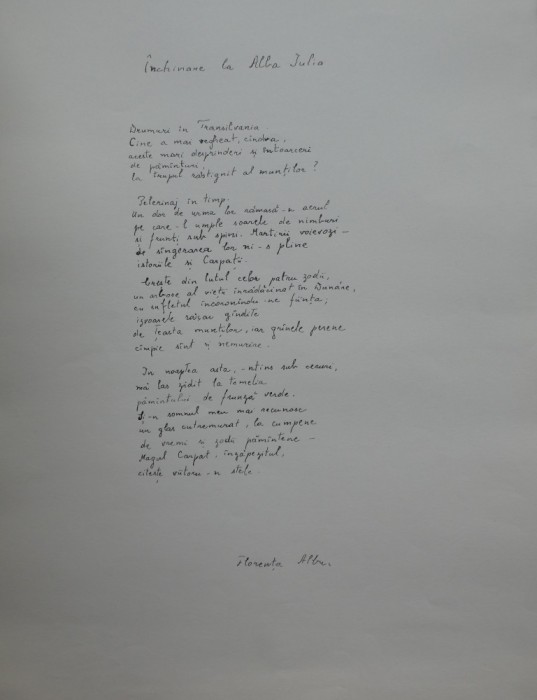 Închinare la Alba Iulia
Drumuri în Transilvania
Cine a mai vegheat, cîndva,
aceste mari desprinderi și întoarceri
de pămînturi,
la trupul răstignit al munților?
Pelerinaj în timp;
Un dor de urma lor rămasă-n aerul
pe care-l umple soarele de nimburi
și frunți sub spini. Martirii voievozi –
de sîngerarea lor ni-s pline
istoriile și Carpații.
Crește din lutul celor patru zodii,
un arbore al vieții înrădăcinat în Dunăre,
cu sufletul încoronîndu-ne ființa;
izvoarele răsar gîndite
de țeasta munților, iar grînele perene
cîmpie sînt și nemurire.
În noaptea asta, -ntins sub ceruri,
mă las zidit la temelia
pămîntului de frunză verde.
Și-n somnul meu mai recunosc
un glas cutremurat, la cumpene
de vremi și zodii pămîntene –
Magul Carpat, îngăpezitul,
citește viitoru-n stele.
Florența Albu